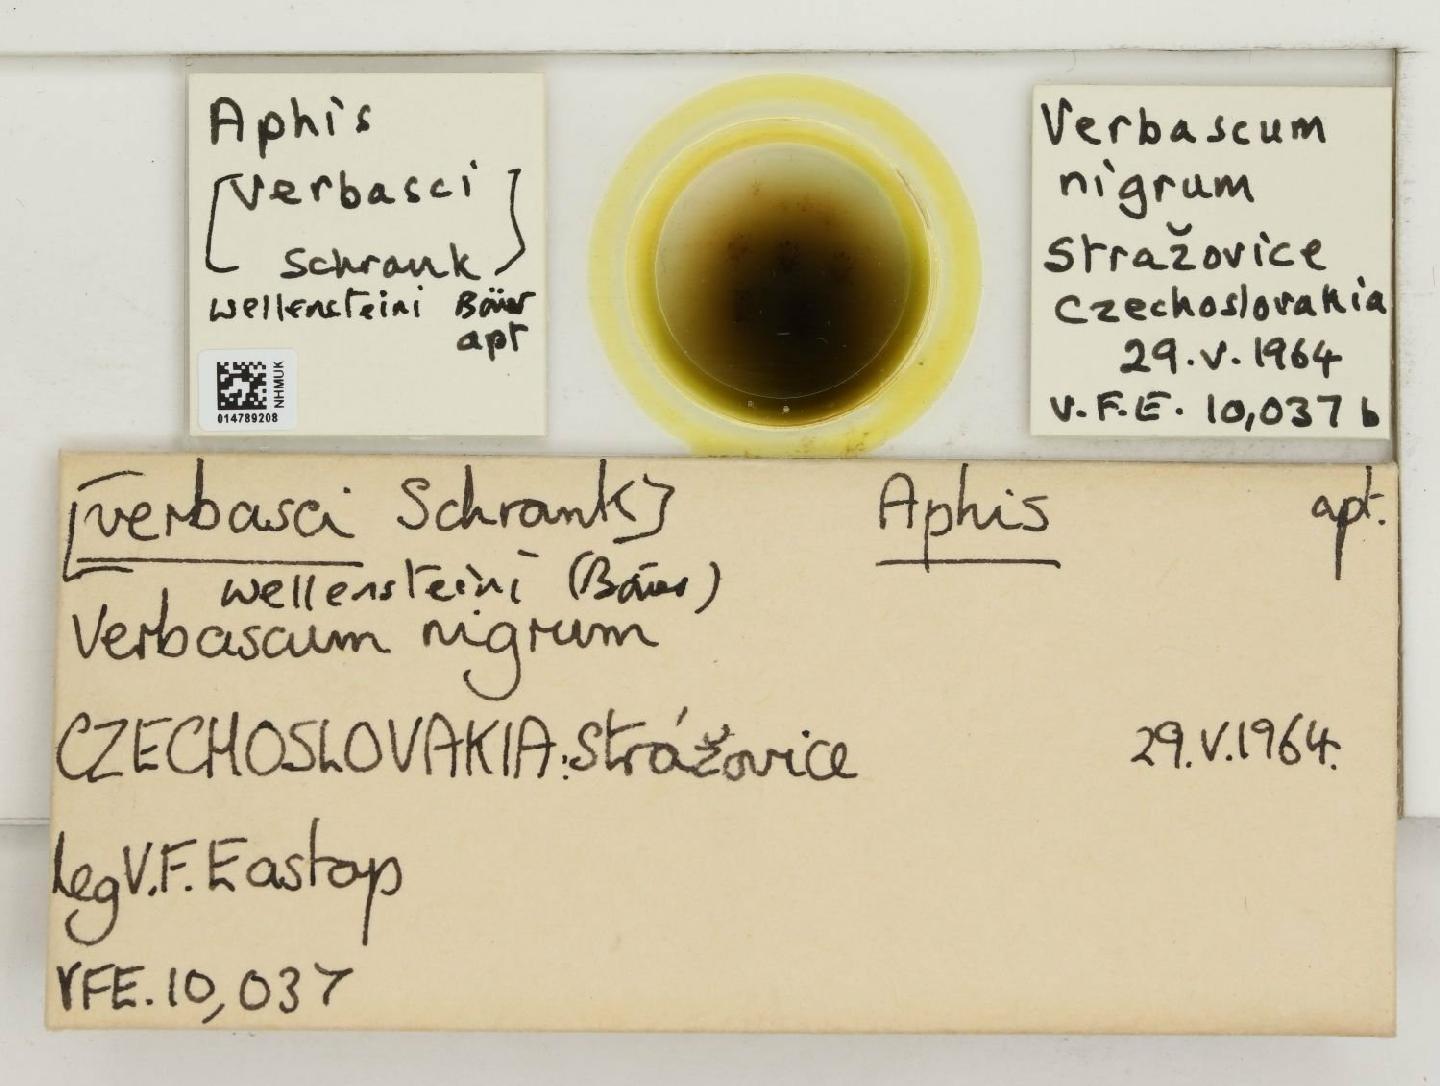 Aphis
[verbasci]
Schrank
wellensteini Börner
apt
NHMUK
014789208
Verbascum
nigrum
Stražovice
Czechoslovakia
29.V.1964
V.F.E. 10,037 b
[verbasci Schrank] Aphis apt.
wellensteini
Verbascum nigrum
CZECHOSLOVAKIA: Strážovice 29.V.1964.
Leg V.F. Eastop
VFE. 10,037